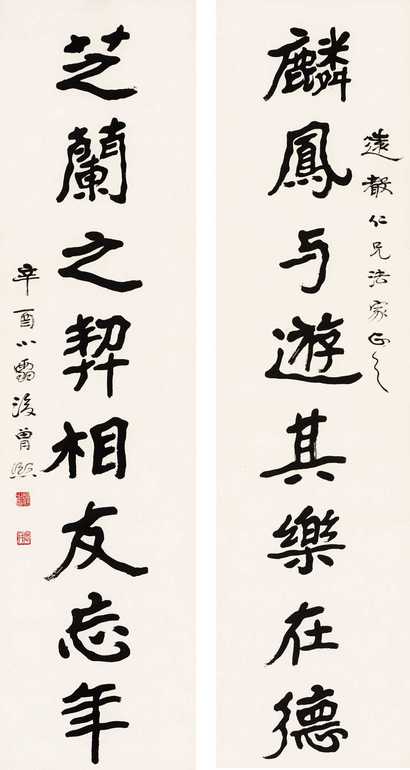 仁兄法家正之
麟鳳与遊其樂在德
芝蘭之契相友忘年
辛酉小雪後曾熙